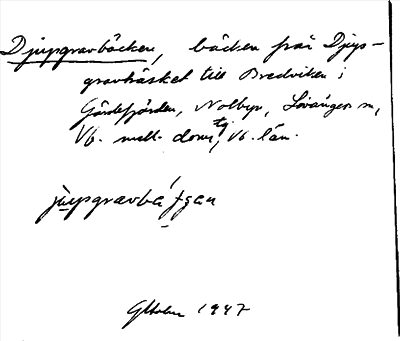 Djupgravbäcken, bäcken från Djup-
gravträsket till Bredviken i
Gärdefjärden, Nolbyn, Lövångers sn,
Vb. mell. doms tg, Vb. län.
jupgravbä
1947